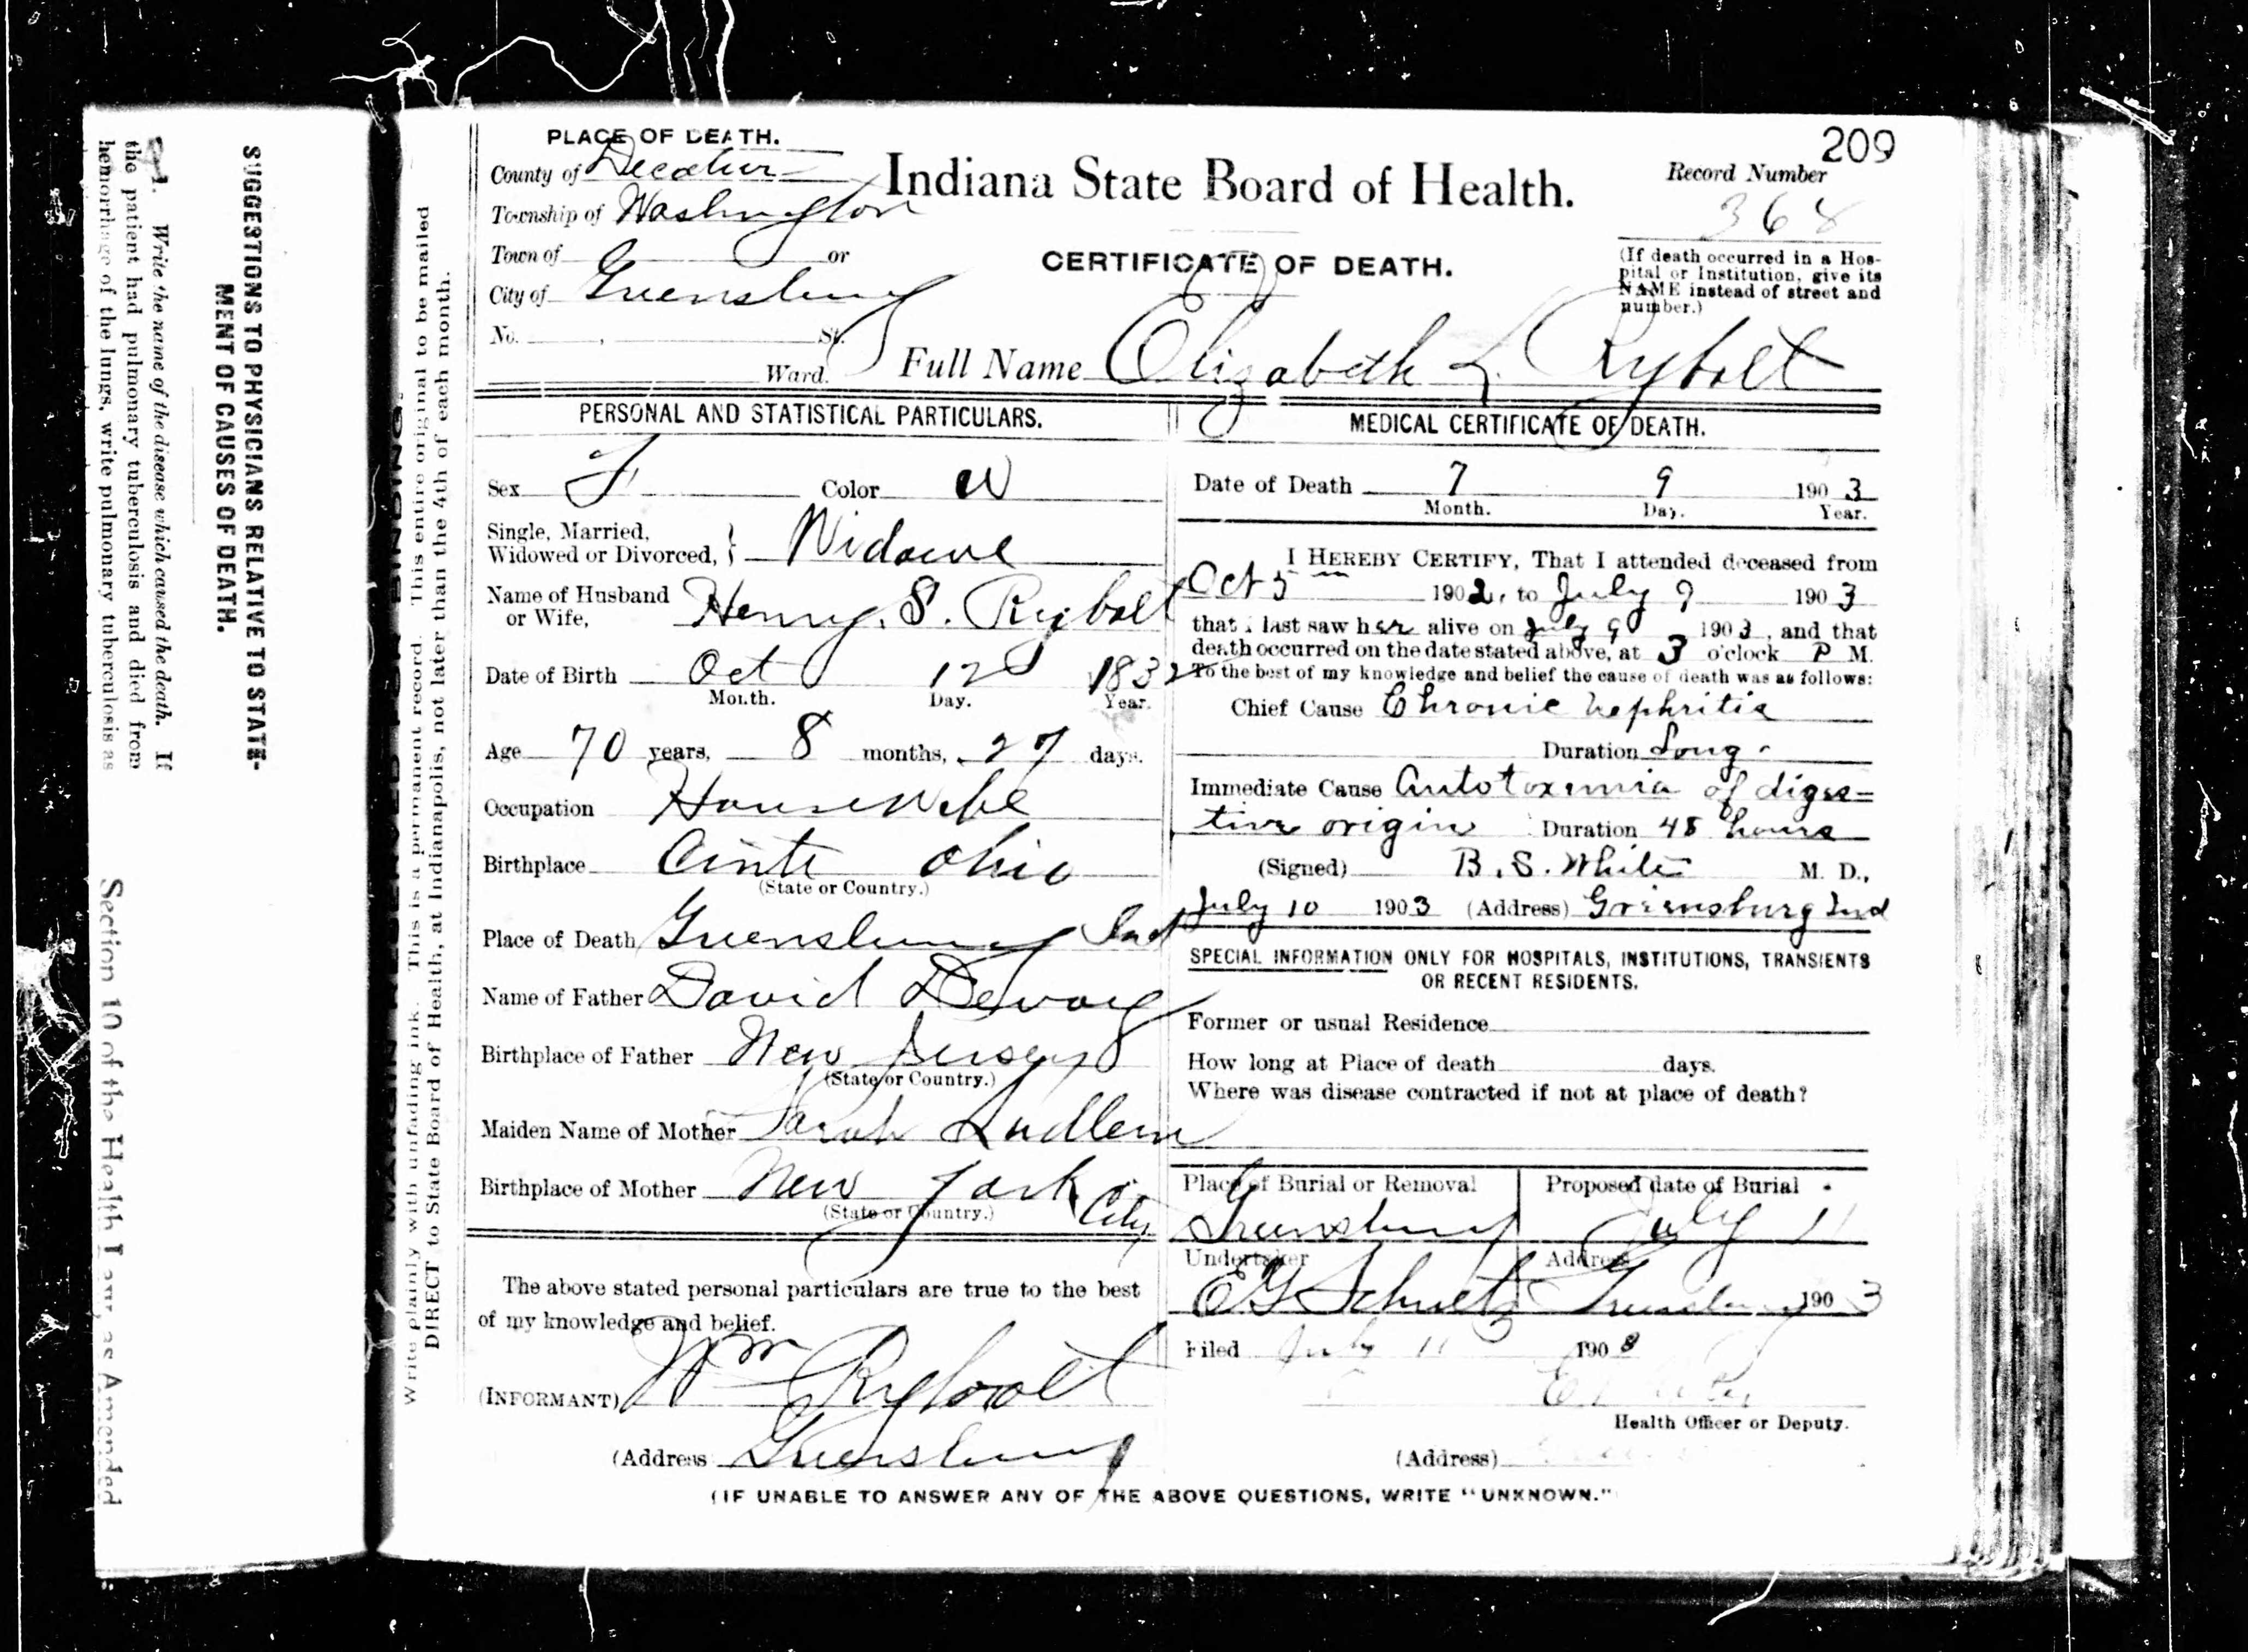 209
PLACE OF DEATH.
County of Decatur
Township of Washington
Town of or
City of Greensburg
No. , St.
Ward.
Indiana State Board of Health.
CERTIFICATE OF DEATH.
Record Number
368
(If death occurred in a Hos-
pital or Institution, give its
NAME instead of street and
number.)
Full Name Elizabeth L. Rybolt
PERSONAL AND STATISTICAL PARTICULARS.
Sex F Color W
Single, Married,
Widowed or Divorced, } Widowe
Name of Husband
or Wife, Henry. S. Rybolt
Date of Birth Oct 12 1832
Month. Day. Year.
Age 70 years, 8 months, 27 days.
Occupation Housewife
Birthplace Ohio
(State or Country.)
Place of Death Greensburg Ind
Name of Father David Devorey
Birthplace of Father New Jersey
(State or Country.)
Maiden Name of Mother Sarah Ludlem
Birthplace of Mother New York City
(State or Country.)
The above stated personal particulars are true to the best
of my knowledge and belief.
(INFORMANT) Wm Rybolt
(Address Greensburg
MEDICAL CERTIFICATE OF DEATH.
Date of Death 7 9 1903
Month. Day. Year.
I HEREBY CERTIFY, That I attended deceased from
Oct 5 1902, to July 9 1903
that I last saw her alive on July 9 1903, and that
death occurred on the date stated above, at 3 o'clock P M.
To the best of my knowledge and belief the cause of death was as follows:
Chief Cause Chronic nephritis
Duration Long.
Immediate Cause Autotoxemia of diges=
tive origin Duration 48 hours
(Signed) B. S. White M. D.,
July 10 1903 (Address) Greensburg Ind
SPECIAL INFORMATION ONLY FOR HOSPITALS, INSTITUTIONS, TRANSIENTS
OR RECENT RESIDENTS.
Former or usual Residence
How long at Place of death days.
Where was disease contracted if not at place of death?
Place of Burial or Removal Proposed date of Burial
Greensburg July 11
Undertaker Address
1903
Filed July 11 1903
Health Officer or Deputy.
(Address)
(IF UNABLE TO ANSWER ANY OF THE ABOVE QUESTIONS, WRITE "UNKNOWN."
Write plainly with unfading ink. This is a permanent record. This entire original to be mailed
DIRECT to State Board of Health, at Indianapolis, not later than the 4th of each month.
SUGGESTIONS TO PHYSICIANS RELATIVE TO STATE-
MENT OF CAUSES OF DEATH.
Write the name of the disease which caused the death. If
the patient had pulmonary tuberculosis and died from
hemorrhage of the lungs, write pulmonary tuberculosis as
Section 10 of the Health Law, as Amended